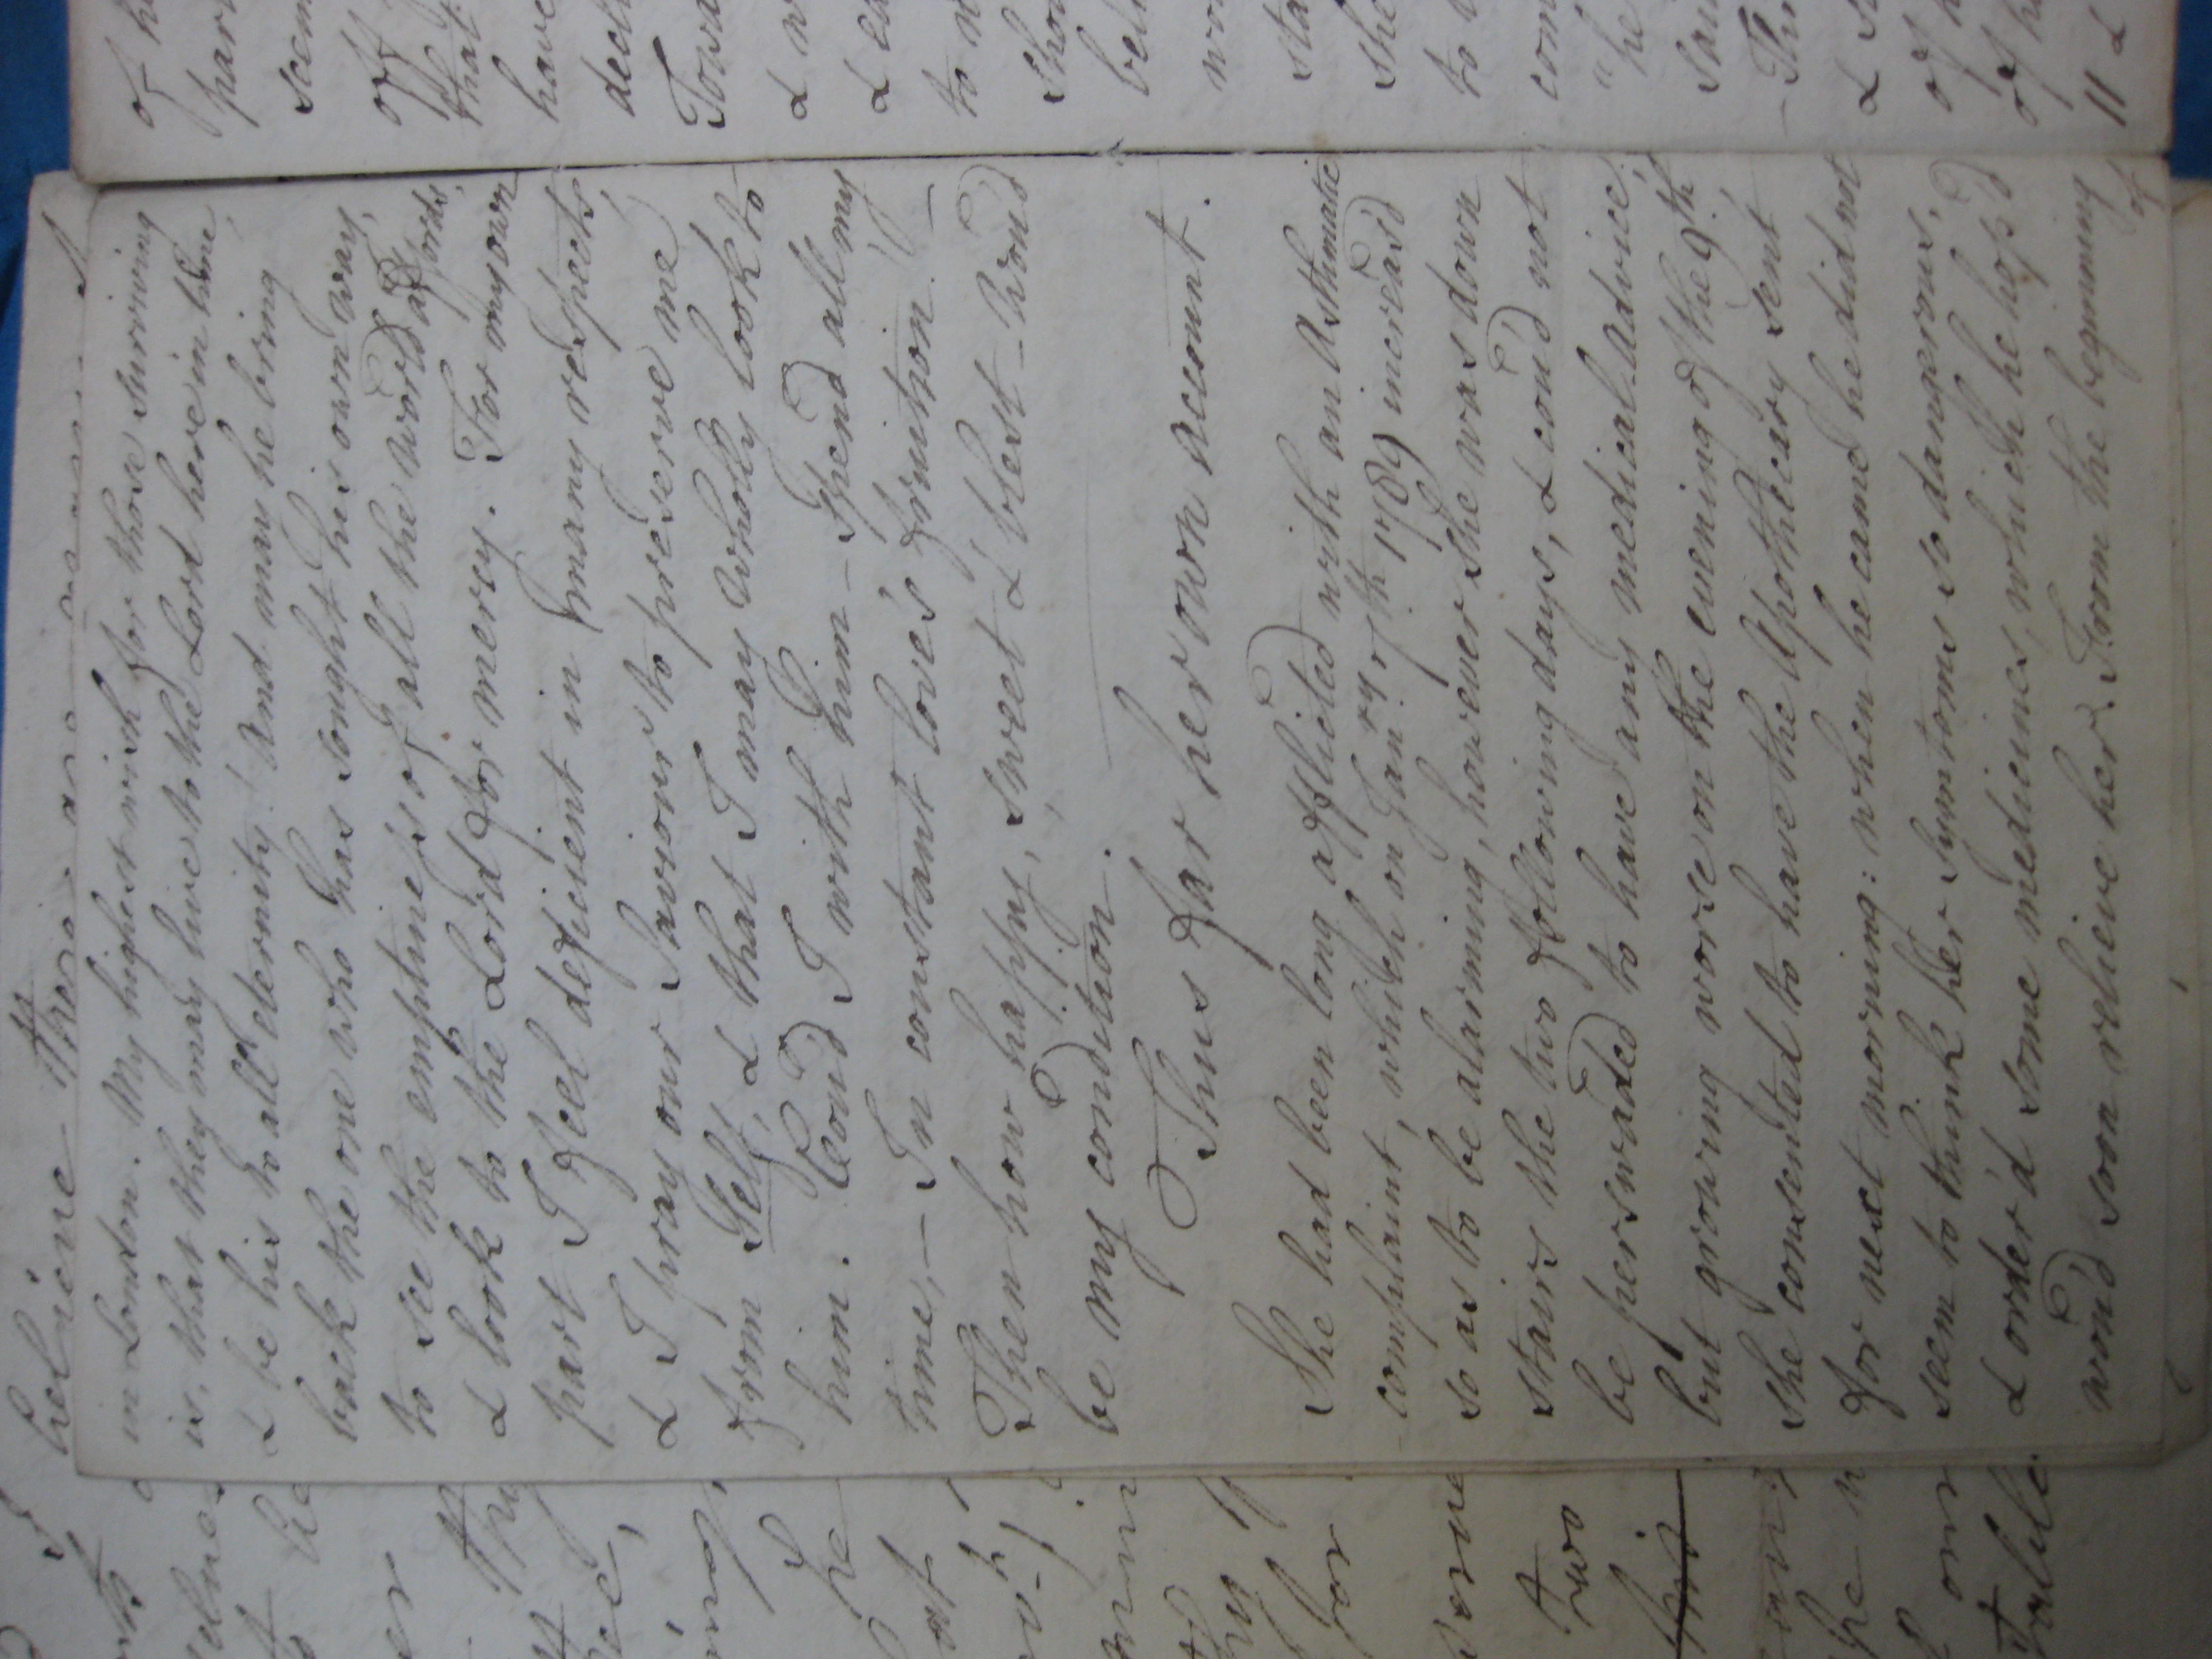 believe there
in London. My highest wish for those surviving
is, that they may live to the Lord here in time,
& be his to all eternity! And may he bring
back the one who has sought his own way,
to see the emptiness of all the world affords,
& look to the Lord for mercy. For my own
part I feel deficient in many respects,
& I pray our Saviour to preserve me
from Self, & that I may wholly look to
him. Cou'd I with him – spend all my
time, – In constant love's fruition! –
Then how happy, sweet & blest – Wou'd
be my condition.
Thus far her own account.
She had been long afflicted with an Asthmatic
complaint, which on Janry. 7th. 1789 increas'd
so as to be alarming, however she was down
stairs the two following days, & cou'd not
be perswaded to have any medical advice;
but growing worse on the evening of the 9th.,
she consented to have the Apothecary sent
for next morning: when he came he did not
seem to think her Symtoms so dangerous,
& order'd some medicines, which he hop'd
wou'd soon relieve her. From the beginning
of
he
for
two
his
of
seem
off
that
have
& w
to
she
to
"he
of
of
11 &